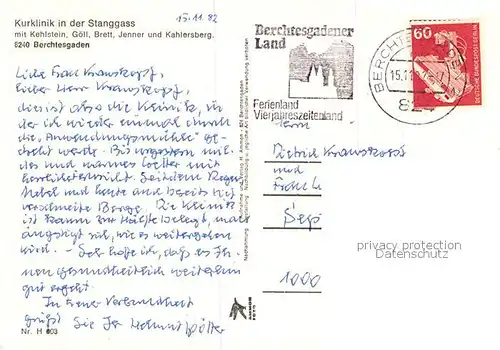 Kurklinik in der Stanggass
mit Kehlstein, Göll, Brett, Jenner und Kahlersberg.
8240 Berchtesgaden
15.11.82
Liebe Frau Krauskopf,
lieber Herr Krauskopf,
dies ist also die Klinik, in
der ich wieder einmal durch
die "Anwendungsmühle" ge-
dreht werde. Bis vorgestern mil-
des und warmes Wetter mit
herrlicher Sicht. Seitdem Regen
Nebel und heute sind bereits tief
verschneite Berge. Die Klinik
ist kaum zur Hälfte belegt, man
ängstigt sich, wie es weitergehen
wird. - Sehr hoffe ich, daß es Ih-
nen gesundheitlich weiterhin
gut ergeht.
In treuer Verbundenheit
grüßt Sie Ihr Helmut
Nr. H 603
Berchtesgadener
Land
Ferienland
Vierjahreszeitenland
15.11.
60
DEUTSCHE BUNDESPOST BERLIN
Herrn
Dietrich Krauskopf
und
Frau
1000
privacy protection
Datenschutz